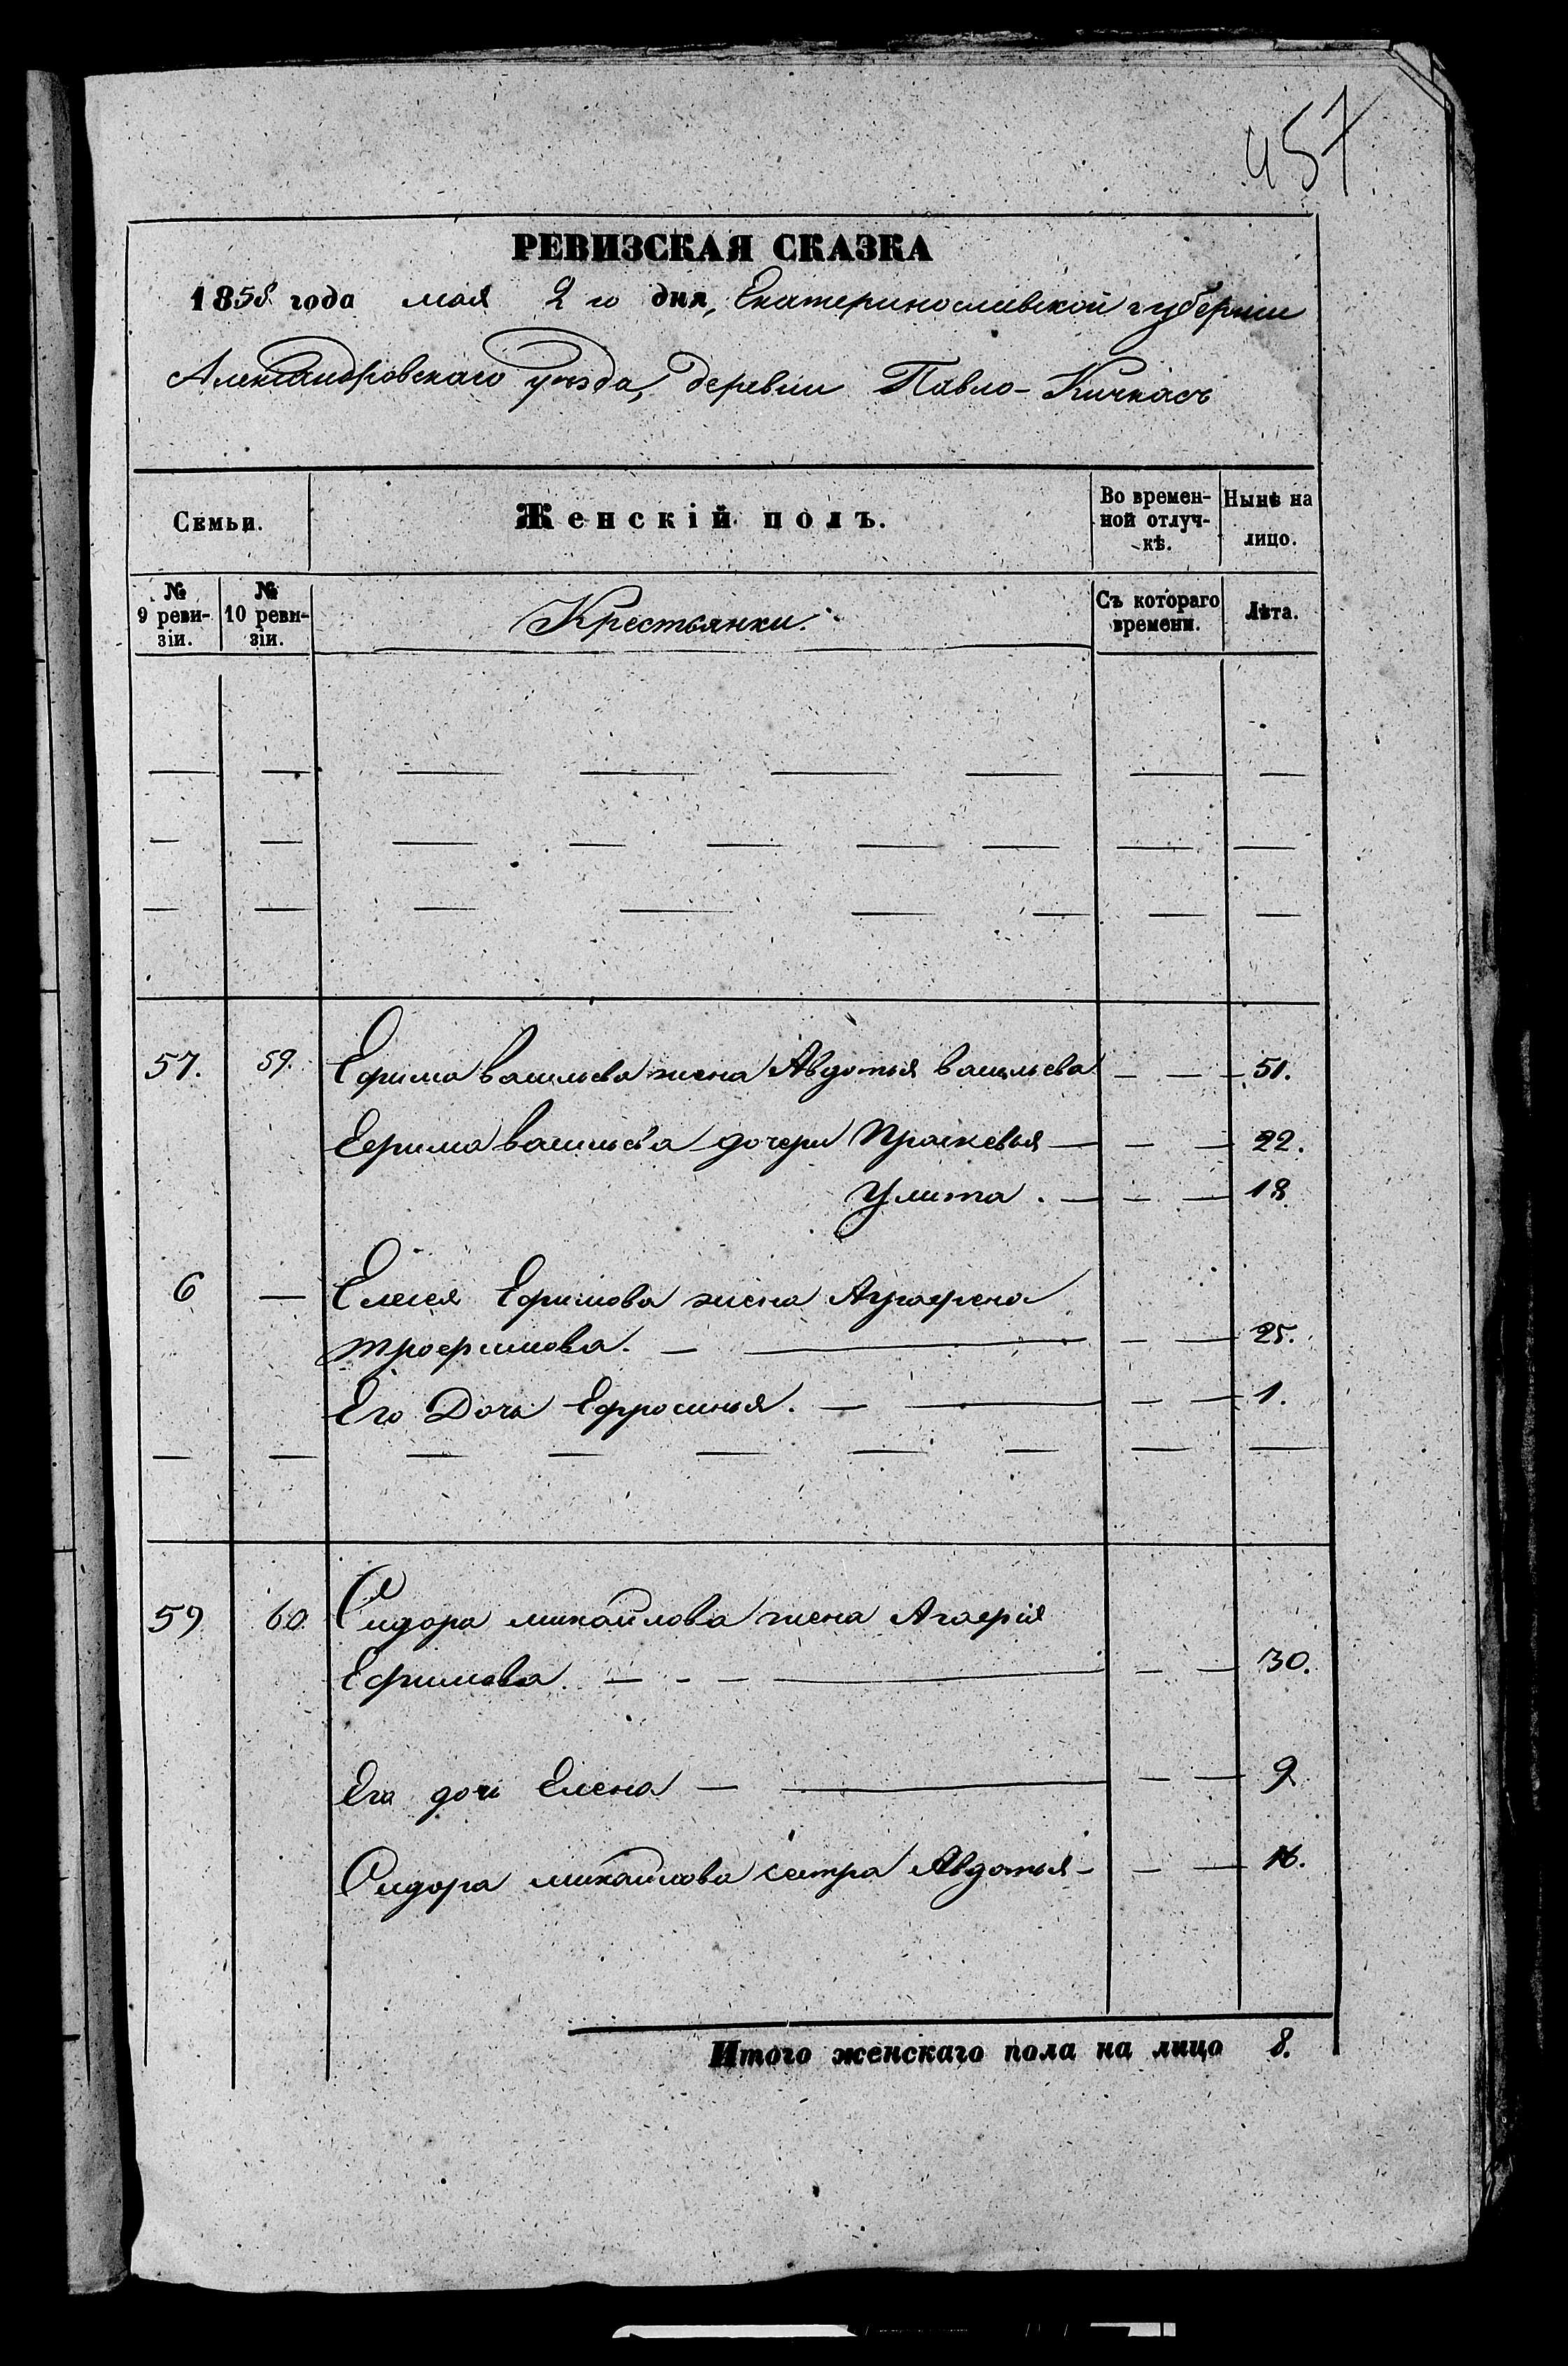 457
РЕВИЗСКАЯ СКАЗКА
1858 года мая 2 го дня, Екатеринославской губернии
Александровскаго уѣзда, деревни Павло-Кичкасъ
Семьи.
Женскій полъ.
Во времен-
ной отлуч-
кѣ.
Нынѣ на
лицо.
№
9 реви-
зіи.
№
10 реви-
зіи.
Крестьянки.
Съ котораго
времени.
Лѣта.
57. 59. Ефима Васильева жена Авдотья Васильева — — 51.
Ефима Васильева дочери Прасковья — — — 22.
Улита. — — — 18
6 — Елисея Ефимова жена Аграфена
трофимова. — — — — 25.
Его Дочь Ефросинья. — — — — 1.
59 60. Сидора михайлова жена Агафія
Ефимова. — - — — — — 30.
Его дочь Елена — — — — 9
Сидора михайлова сестра Авдотья — — — 16.
Итого женскаго пола на лицо 8.